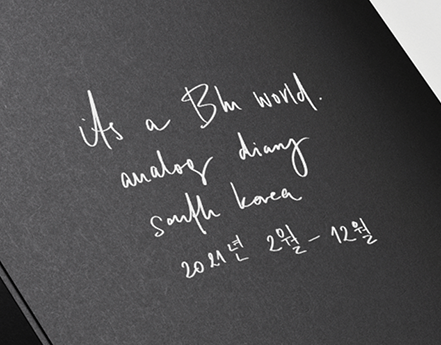 its a Bln world.
analog diary
south korea
2021년 2월 - 12월